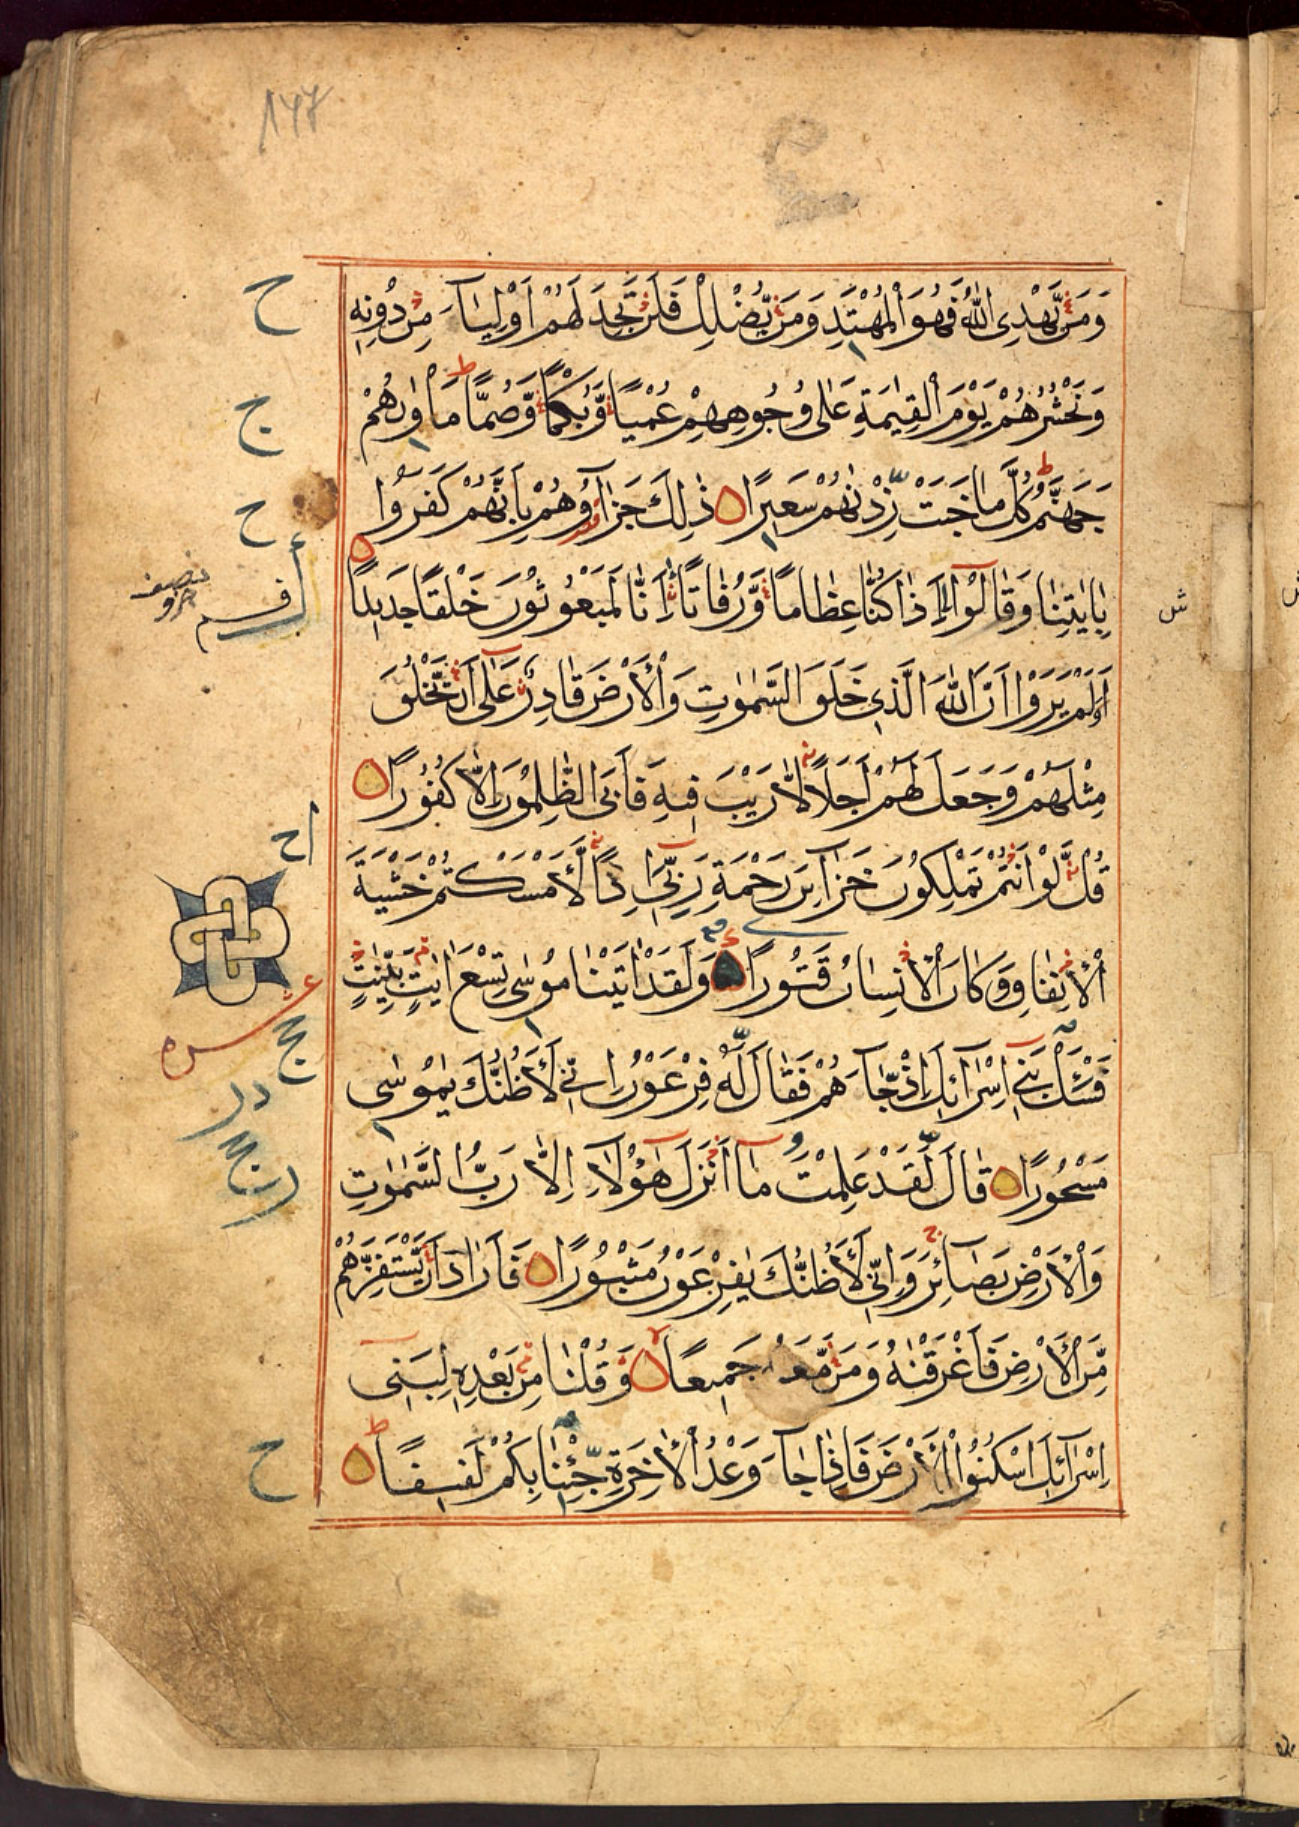 وَمَنْ يَّهْدِى اللّٰهُ فَهُوَ الْمُهْتَدِ وَمَنْ يُّضْلِلْ فَلَنْ تَجِدَ لَهُمْ اَوْلِيَآءَ مِنْ دُوْنِهٖ
وَنَحْشُرُهُمْ يَوْمَ الْقِيٰمَةِ عَلٰى وُجُوهِهِمْ عُمْيًا وَّبُكْمًا وَّصُمًّا مَاْوٰىهُمْ
جَهَنَّمُ كُلَّمَا خَبَتْ زِدْنٰهُمْ سَعِيرًا ذٰلِكَ جَزَآؤُهُمْ بِاَنَّهُمْ كَفَرُوا
بِاٰيٰتِنَا وَقَالُوْا ءَاِذَا كُنَّا عِظَامًا وَّرُفَاتًا ءَاِنَّا لَمَبْعُوثُوْنَ خَلْقًا جَدِيدًا
اَوَلَمْ يَرَوْا اَنَّ اللّٰهَ الَّذِى خَلَقَ السَّمٰوٰتِ وَالْاَرْضَ قَادِرٌ عَلٰى اَنْ يَّخْلُقَ
مِثْلَهُمْ وَجَعَلَ لَهُمْ اَجَلًا لَّا رَيْبَ فِيهِ فَاَبَى الظّٰلِمُوْنَ اِلَّا كُفُوْرًا
قُلْ لَّوْ اَنْتُمْ تَمْلِكُوْنَ خَزَآىِٕنَ رَحْمَةِ رَبِّىْ اِذًا لَّاَمْسَكْتُمْ خَشْيَةَ
الْاِنْفَاقِ وَكَانَ الْاِنْسَانُ قَتُوْرًا وَلَقَدْ اٰتَيْنَا مُوْسٰى تِسْعَ اٰيٰتٍ بَيِّنٰتٍ
فَسْـَٔلْ بَنِىْ اِسْرَآئِلَ اِذْ جَآءَهُمْ فَقَالَ لَهٗ فِرْعَوْنُ اِنِّىْ لَاَظُنُّكَ يٰمُوْسٰى
مَسْحُوْرًا قَالَ لَقَدْ عَلِمْتَ مَآ اَنْزَلَ هٰٓؤُلَآءِ اِلَّا رَبُّ السَّمٰوٰتِ
وَالْاَرْضِ بَصَآئِرَ وَاِنِّىْ لَاَظُنُّكَ يٰفِرْعَوْنُ مَثْبُوْرًا فَاَرَادَ اَنْ يَّسْتَفِزَّهُمْ
مِّنَ الْاَرْضِ فَاَغْرَقْنٰهُ وَمَنْ مَّعَهٗ جَمِيعًا وَّقُلْنَا مِنْ بَعْدِهٖ لِبَنِىْ
اِسْرَآئِلَ اسْكُنُوا الْاَرْضَ فَاِذَا جَآءَ وَعْدُ الْاٰخِرَةِ جِئْنَا بِكُمْ لَفِيفًا